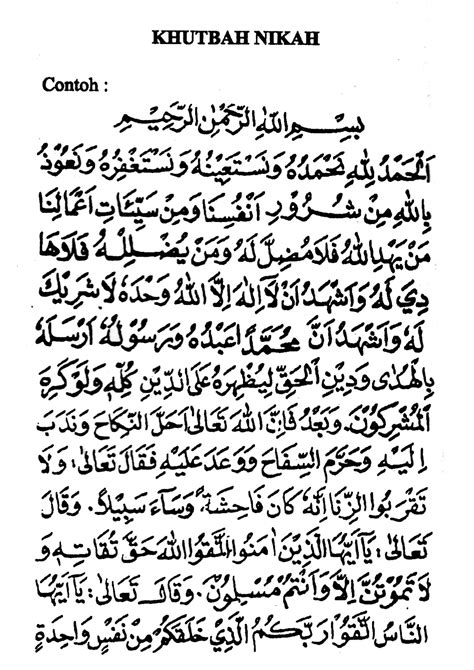 KHUTBAH NIKAH
Contoh :
بِسْمِ اللهِ الرَّحْمٰنِ الرَّحِيْمِ
اَلْحَمْدُ لِلّٰهِ نَحْمَدُهُ وَنَسْتَعِيْنُهُ وَنَسْتَغْفِرُهُ وَنَعُوْذُ
بِاللهِ مِنْ شُرُوْرِ اَنْفُسِنَا وَمِنْ سَيِّئَاتِ اَعْمَالِنَا
مَنْ يَهْدِ اللهُ فَلَا مُضِلَّ لَهُ وَمَنْ يُضْلِلْهُ فَلَاهَا
دِيَ لَهُ وَاَشْهَدُ اَنْ لَااِلٰهَ اِلَّا اللهُ وَحْدَهُ لَاشَرِيْكَ
لَهُ وَاَشْهَدُ اَنَّ مُحَمَّدًا عَبْدُهُ وَرَسُوْلُهُ اَرْسَلَهُ
بِالْهُدٰى وَدِيْنِ الْحَقِّ لِيُظْهِرَهُ عَلَى الدِّيْنِ كُلِّهِ وَلَوْكَرِهَ
الْمُشْرِكُوْنَ. وَبَعْدُ فَاِنَّ اللهَ تَعَالٰى اَحَلَّ النِّكَاحَ وَنَدَبَ
اِلَيْهِ وَحَرَّمَ السِّفَاحَ وَوَعَدَ عَلَيْهِ فَقَالَ تَعَالٰى: وَلَا
تَقْرَبُوا الزِّنَا اِنَّهُ كَانَ فَاحِشَةً وَسَاءَ سَبِيْلًا. وَقَالَ
تَعَالٰى: يَآاَيُّهَا الَّذِيْنَ اٰمَنُوا اتَّقُوا اللهَ حَقَّ تُقَاتِهِ وَ
لَا تَمُوْتُنَّ اِلَّا وَاَنْتُمْ مُسْلِمُوْنَ. وَقَالَ تَعَالٰى: يَآاَيُّهَا
النَّاسُ اتَّقُوْا رَبَّكُمُ الَّذِيْ خَلَقَكُمْ مِنْ نَفْسٍ وَاحِدَةٍ